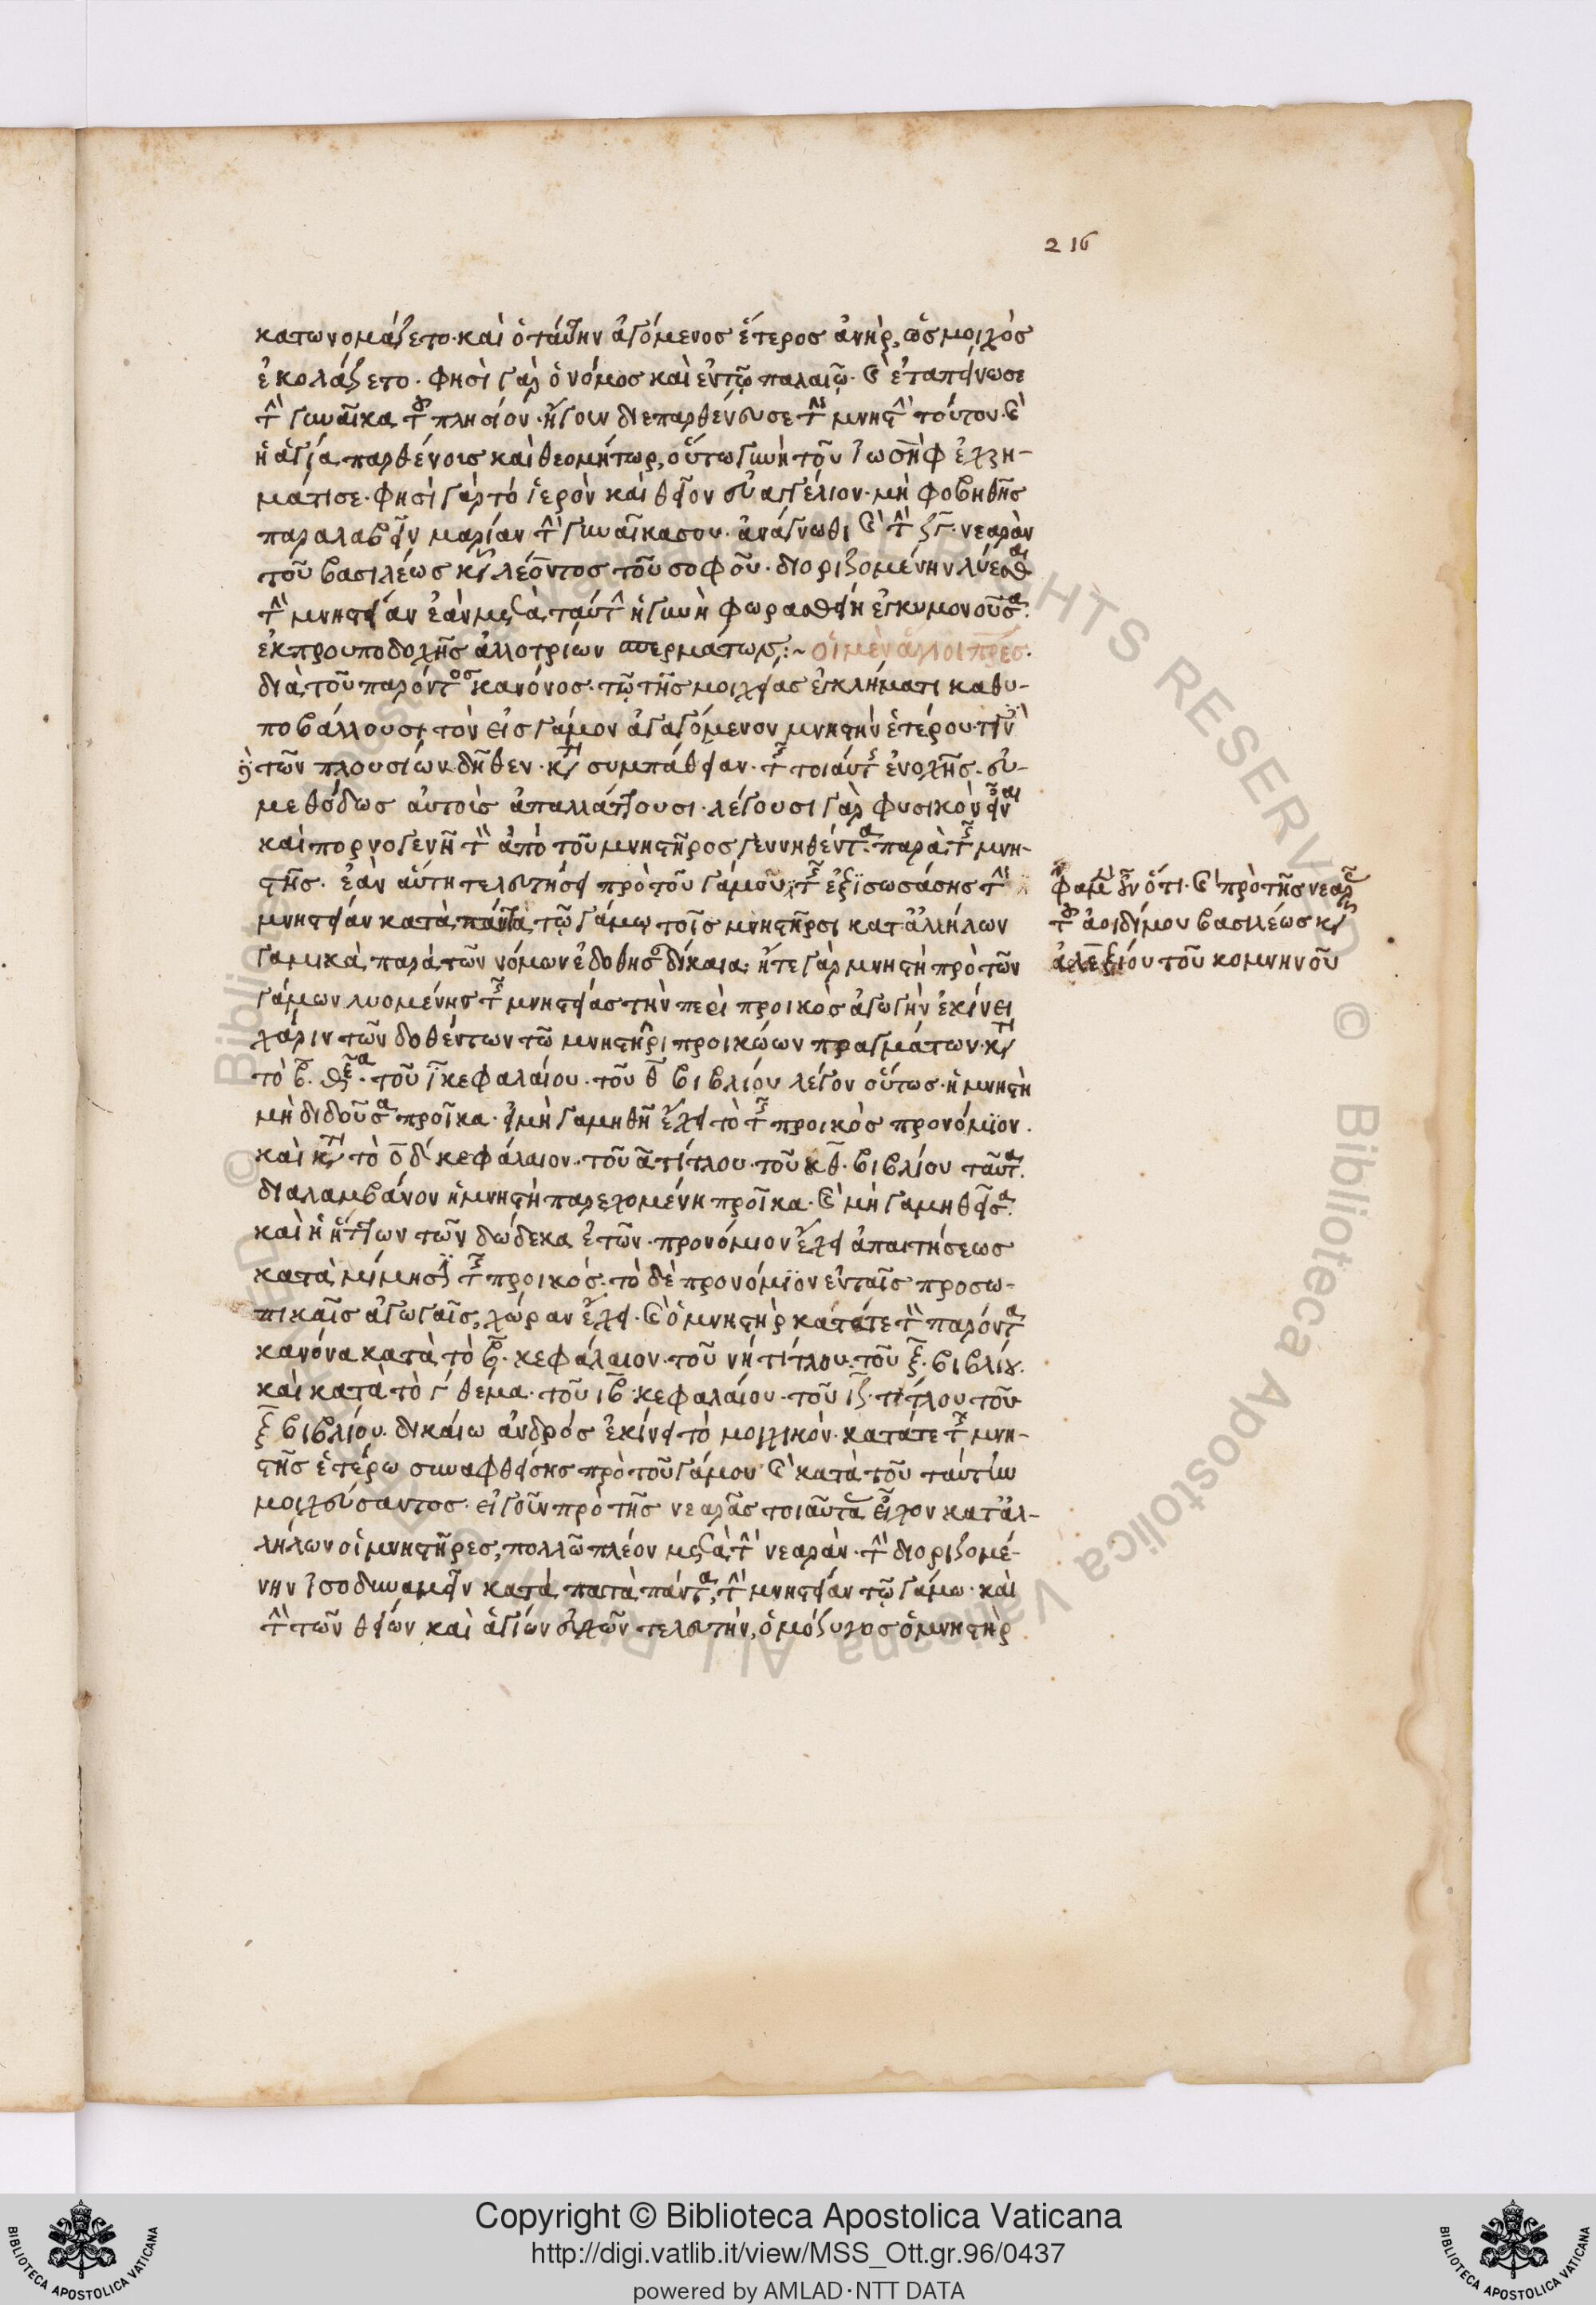 216
κατωνομάζετο· καὶ ὁ ταύτην ἀγόμενος ἕτερος ἀνὴρ, ὡς μοιχὸς
ἐκολάζετο· φησὶ γὰρ ὁ νόμος καὶ ἐν τῷ παλαιῷ· καὶ ἐταπείνωσε
τὴν γυναῖκα τοῦ πλησίον· ἤγουν διεπαρθένευσε τὴν μνηστὴν τούτου· καὶ
ἡ ἁγία παρθένος καὶ θεομήτωρ, οὕτω γυνὴ τοῦ ἰωσὴφ ἐχρη-
μάτισε· φησὶ γὰρ τὸ ἱερὸν καὶ θεῖον εὐαγγέλιον· μὴ φοβηθῇς
παραλαβεῖν μαρίαν τὴν γυναῖκα σου· ἀνάγνωθι καὶ τὴν νεαρὰν
τοῦ βασιλέως κυ λέοντος τοῦ σοφοῦ· διοριζομένην λύεσθαι
τὴν μνηστείαν ἐὰν μετὰ ταύτην ἡ γυνὴ φωραθείη ἐγκυμονοῦσα
ἐκ προυποδοχῆς ἀλλοτρίων σπερμάτων:~ οἱ μὲν ἄλλοι πρες·
διὰ τοῦ παρόντος κανόνος· τῷ τῆς μοιχείας ἐγκλήματι καθυ-
ποβάλλουσι τὸν εἰς γάμον ἀγαγόμενον μνηστὴν ἑτέρου·
τῶν πλουσίων δῆθεν· κατὰ συμπάθειαν· τῆς τοιαύτης ἐνοχῆς· εὐ-
μεθόδως αὐτοὶς ἀπαλλάττουσι· λέγουσι γὰρ φυσικὸν εἶναι
καὶ πορνογενῆ τὸν ἀπὸ τοῦ μνηστῆρος γεννηθέντα παρὰ τῆς μνη-
στῆς· ἐὰν αὕτη τελευτήσει πρὸ τοῦ γάμου· τῆς ἐξϊσωσάσης τὴν
μνηστείαν κατὰ πάντα τῷ γάμω τοῖς μνηστῆρσι κατ ἀλλήλων
γαμικὰ παρὰ τῶν νόμων ἐδοθησαν δίκαια· ἥτε γὰρ μνηστὴ πρὸ τῶν
γάμων λυομένης τῆς μνηστείας τὴν περὶ προικὸς ἀγωγὴν ἐκίνει
χάριν τῶν δοθέντων τῶ μνηστῆρι προικώων πραγμάτων· κατὰ
τὸ β· θέμα τοῦ κεφαλαίου· τοῦ θ βιβλίου λέγον οὕτως· ἡ μνηστὴ
μὴ διδοῦσα προῖκα· εἰ μὴ γαμηθῇ ἔχει τὸ τῆς προικὸς προνόμϊον·
καὶ κατὰ τὸ οδ κεφάλαιον· τοῦ α τίτλου· τοῦ κθ βιβλίου ταῦτα
διαλαμβάνον ἡ μνηστὴ παρεχομένη προῖκα· καὶ μὴ γαμηθεῖσα
καὶ ἡ ἥττων τῶν δώδεκα ἐτῶν· προνόμιον ἔχει ἀπαιτήσεως
κατὰ μίμησιν τῆς προικός· τὸ δὲ προνόμϊον ἐν ταῖς προσω-
πικαῖς ἀγωγαῖς, χώραν ἔχει· καὶ ὁ μνηστὴρ κατάτε τὸν παρόντα
κανόνα κατὰ τὸ β· κεφάλαιον· τοῦ νή τίτλου· τοῦ ξ· βιβλίου·
καὶ κατὰ τὸ γ θέμα· τοῦ ιβ κεφαλαίου· τοῦ ιζ· τίτλου τοῦ
ξ βιβλίου· δικαίω ἀνδρός ἐκίνει τὸ μοιχικὸν· κατάτε τῆς μνη-
στῆς ἑτέρω συναφθείσης πρὸ τοῦ γάμου καὶ κατὰ τοῦ ταύτην
μοιχεύσαντος· εἰ γοῦν πρὸ τῆς νεαρᾶς τοιαῦτα εἶχον κατ ἀλ-
λήλων οἱ μνηστῆρες, πολλῶ πλέον μετὰ τὴν νεαρὰν· τὴν διοριζομέ-
νην ἰσοδυναμεῖν κατὰ πάντα, τὴν μνηστείαν τῷ γάμω· καὶ
τὴν τῶν θείων καὶ ἁγίων εὐχῶν τελευτὴν, ὁμόζυγος ὁ μνηστὴρ
φαμὲν οὖν ὅτι· καὶ πρὸ τῆς νεαρᾶς
τοῦ ἀοιδίμου βασιλέως κυ
ἀλεξίου τοῦ κομνηνοῦ
Copyright © Biblioteca Apostolica Vaticana
http://digi.vatlib.it/view/MSS_Ott.gr.96/0437
powered by AMLAD·NTT DATA
BIBLIOTECA APOSTOLICA VATICANA
BIBLIOTECA APOSTOLICA VATICANA